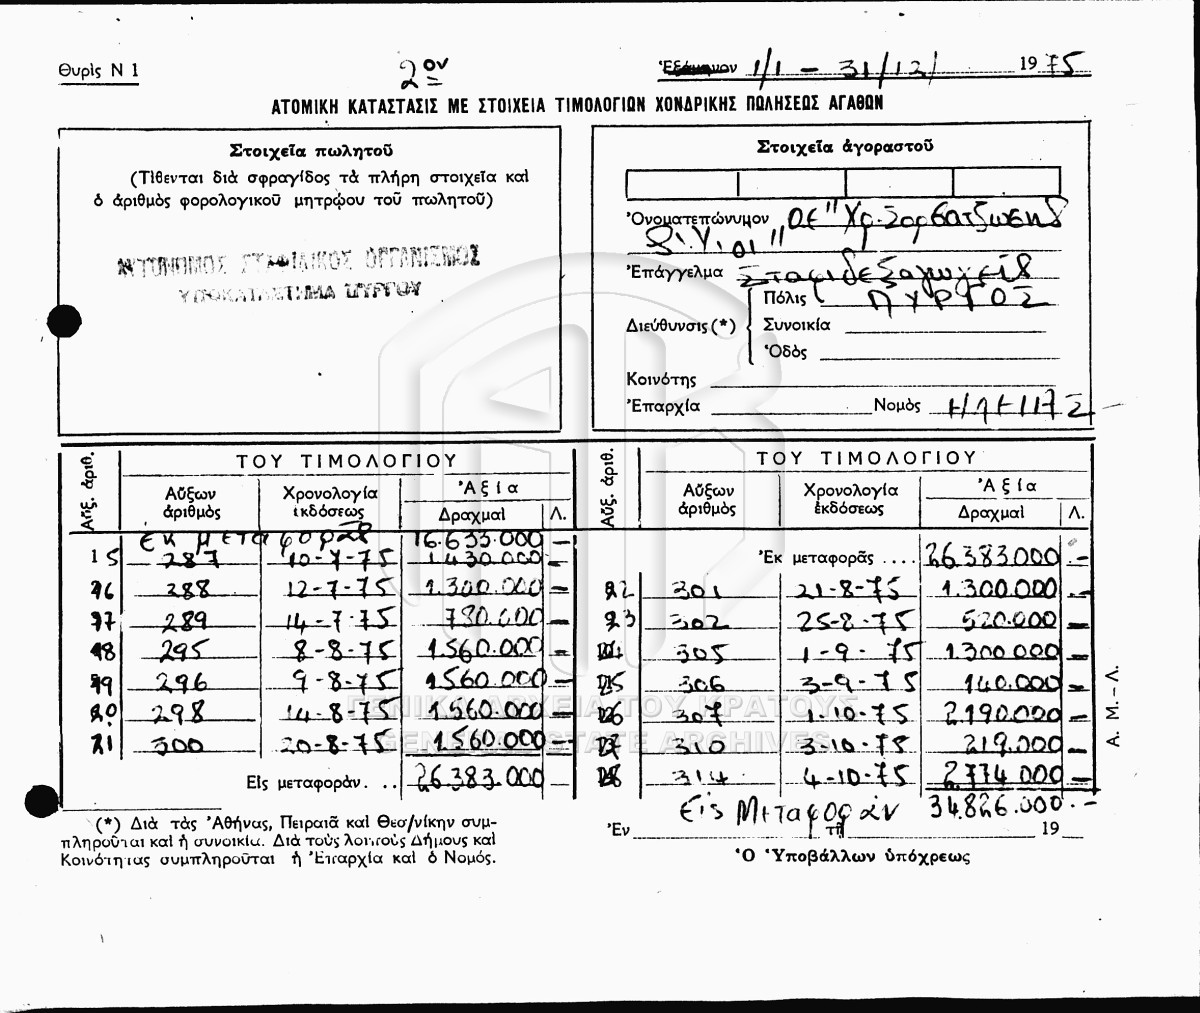 Θυρὶς Ν 1
2ον
Ἑξάμηνον 1/1 – 31/12/ 1975
ΑΤΟΜΙΚΗ ΚΑΤΑΣΤΑΣΙΣ ΜΕ ΣΤΟΙΧΕΙΑ ΤΙΜΟΛΟΓΙΩΝ ΧΟΝΔΡΙΚΗΣ ΠΩΛΗΣΕΩΣ ΑΓΑΘΩΝ
Στοιχεῖα πωλητοῦ
(Τίθενται διὰ σφραγῖδος τὰ πλήρη στοιχεῖα καὶ
ὁ ἀριθμὸς φορολογικοῦ μητρῴου τοῦ πωλητοῦ)
ΑΥΤΟΝΟΜΟΣ ΣΤΑΦΙΔΙΚΟΣ ΟΡΓΑΝΙΣΜΟΣ
ΥΠΟΚΑΤΑΣΤΗΜΑ ΠΥΡΓΟΥ
Στοιχεῖα ἀγοραστοῦ
Ὀνοματεπώνυμον ΟΕ "Χρ.
Ἐπάγγελμα Σταφιδεξαγωγεῖς
Διεύθυνσις (*)
Πόλις ΠΥΡΓΟΣ
Συνοικία
Ὁδὸς
Κοινότης
Ἐπαρχία Νομὸς ΗΛΕΙΑΣ
Αὔξ. ἀριθ.
ΤΟΥ ΤΙΜΟΛΟΓΙΟΥ
Αὔξων ἀριθμὸς Χρονολογία ἐκδόσεως Ἀξία
Δραχμαὶ Λ.
Ἐκ μεταφορᾶς 16.633.000 –
15 287 10-7-75 1.430.000 –
16 288 12-7-75 1.300.000 –
17 289 14-7-75 780.000 –
18 295 8-8-75 1.560.000 –
19 296 9-8-75 1.560.000 –
20 298 14-8-75 1.560.000 –
21 300 20-8-75 1.560.000 –
Εἰς μεταφορὰν... 26.383.000 –
Αὔξ. ἀριθ.
ΤΟΥ ΤΙΜΟΛΟΓΙΟΥ
Αὔξων ἀριθμὸς Χρονολογία ἐκδόσεως Ἀξία
Δραχμαὶ Λ.
Ἐκ μεταφορᾶς .... 26.383.000 –
22 301 21-8-75 1.300.000 –
23 302 25-8-75 520.000 –
24 305 1-9-75 1.300.000 –
25 306 3-9-75 140.000 –
26 307 1-10-75 2.190.000 –
27 310 3-10-75 219.000 –
28 314 4-10-75 2.774.000 –
Εἰς Μεταφορὰν 34.826.000.–
Α. Μ. – Λ.
(*) Διὰ τὰς Ἀθήνας, Πειραιᾶ καὶ Θεσ/νίκην συμ-
πληροῦται καὶ ἡ συνοικία. Διὰ τοὺς λοιποὺς Δήμους καὶ
Κοινότητας συμπληροῦται ἡ Ἐπαρχία καὶ ὁ Νομός.
Ἐν τῇ 19
Ὁ Ὑποβάλλων ὑπόχρεως
ΓΕΝΙΚΑ ΑΡΧΕΙΑ ΤΟΥ ΚΡΑΤΟΥΣ
GENERAL STATE ARCHIVES